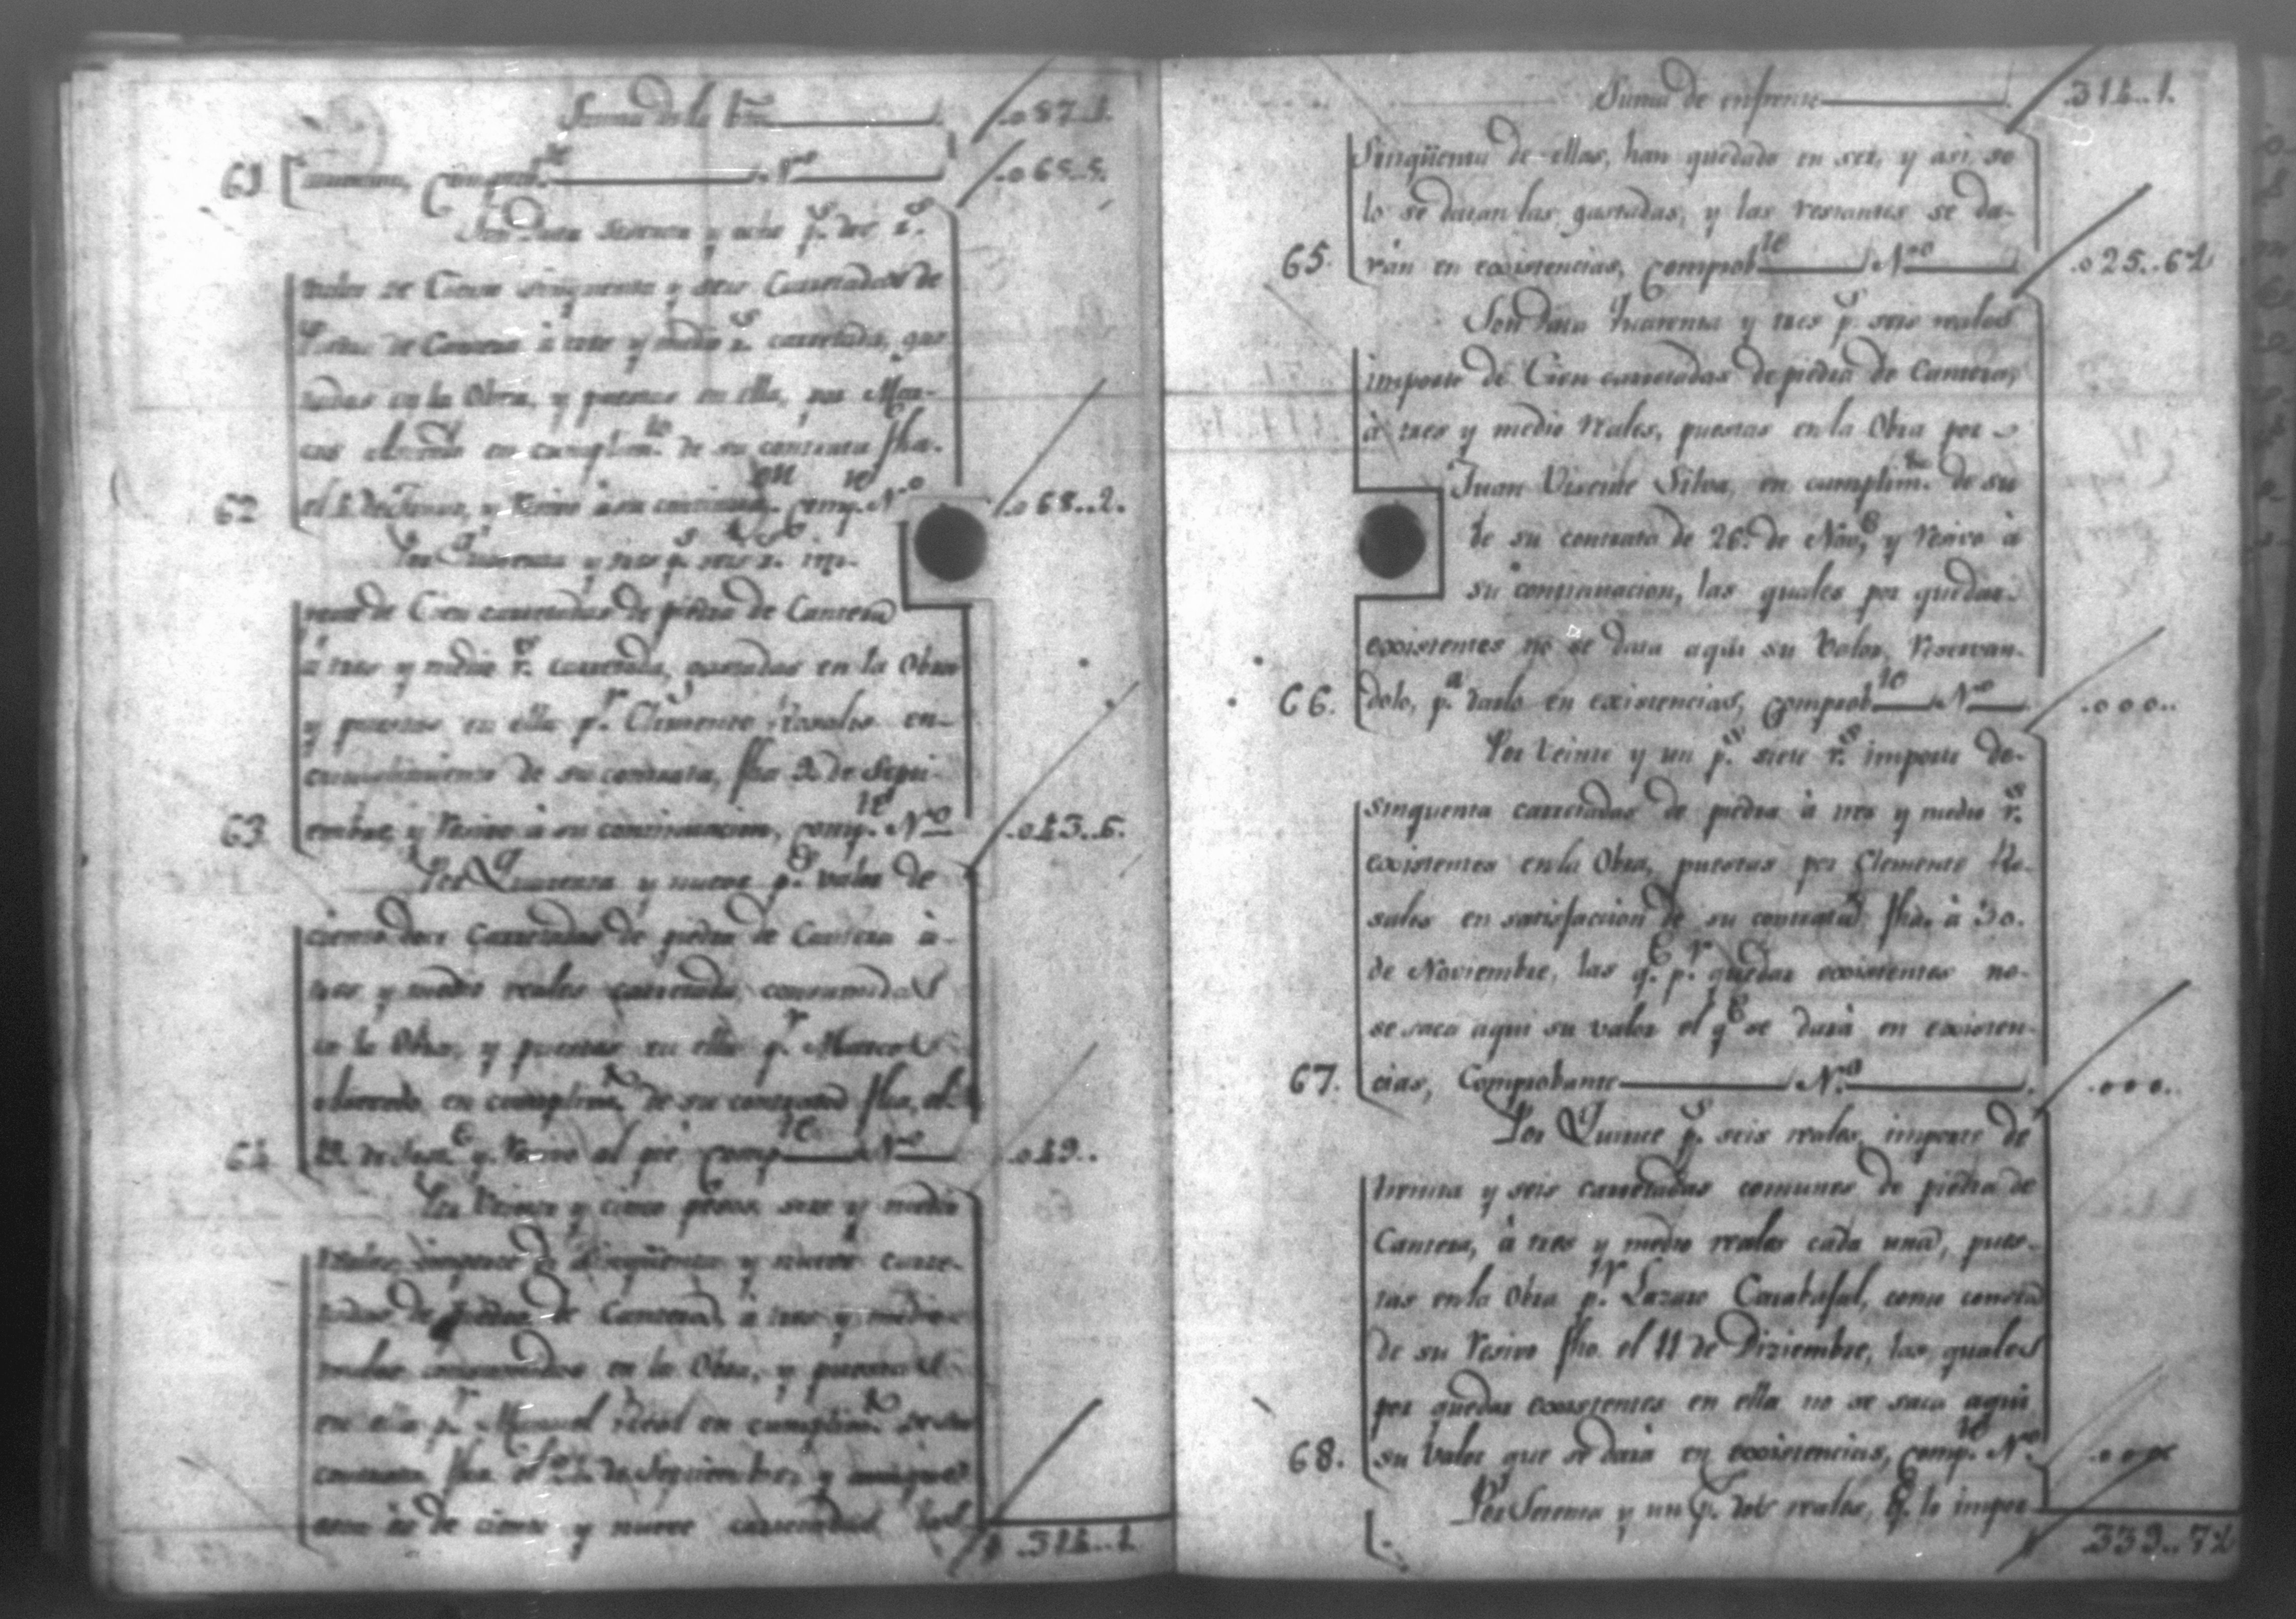 Suma de la bta .087..1.
61 nuacion, Comprobte Nro .065..5.
Son Data sesenta y ocho ps. dos rs.
valor de Ciento sinquenta y seis Carretadas de
Piedra de Cantera à tres y medio rs. carretada, gas
tadas en la Obra, y puestas en ella, por Mar-
cos en cumplimto de su contrata fha.
62 el y Resivo à su continuaon compte. Nro .068..2.
Por Quarenta y tres ps. seis rs. im-
porte de Cien carretadas de piedra de Cantera
à tres y medio rs. carretada, gastadas en la Obra
y puestas en ella pr. Clemente Rosales en-
cumplimiento de su contrata, fha 9. de Septi-
63 embre, y Resivo à su continuacion, compte. Nro .043..6.
Por Quarenta y nueve ps. valor de
ciento doce Carretadas de piedra de Cantera à-
tres y medio reales carretada, consumidas
en la Obra, y puestas en ella pr. Marcos
en cumplimto de su contrata fha, el
64 y Resivo al pie compte Nro .049..
Por Veinte y cinco pesos, seis y medio
reales, importe de sinqüenta y nueve carre-
tadas de piedra de Cantera, à tres y medio
reales consumidas en la Obra, y puestas
en ella pr. Manuel Real en cumplimto de su
contrata fha. el de Septiembre, y aunque
esta es de ciento y nueve carretadas las
.314..1.
Suma de enfrente .314..1.
Sinqüenta de ellas, han quedado en ser, y asi so
lo se datan las gastadas, y las restantes se da-
65. rán en exsistencias, comprobte Nro .025..6½
Son Data Quarenta y tres ps. seis reales
importe de Cien carretadas de piedra de Cantera,
à tres y medio reales, puestas en la Obra por
Juan Visente Silva, en cumplimto. de su
te su contrata de 26. de Nove, y Resivo à
su continuacion, las quales por quedar.
exsistentes no se data aqui su Valor, Reservan-
66. dolo, pa. darlo en existencias, comprobte Nro .000..
Por Veinte y un ps. siete rs. importe de-
sinquenta carretadas de piedra à tres y medio rs.
exsistentes en la Obra, puestas por Clemente Ro-
sales en satisfaccion de su contrata fha. à 30.
de Noviembre, las qe. pr. quedar exsistentes no-
se saca aqui su valor el qe se dará en exsisten-
67. cias, Comprobante Nro .000..
Por Quince ps. seis reales, importe de
treinta y seis carretadas comunes de piedra de
Cantera, à tres y medio reales cada una, pues-
tas en la Obra pr. Lazaro Carabafal, como consta
de su Resivo fho. el 11 de Diziembre, las, quales
por quedar exsistentes en ella no se saca aqui
68. su Valor que se dará en exsistencias, compte. Nro .000
Por Setenta y un ps. dos reales, qe. lo impor
339..7½